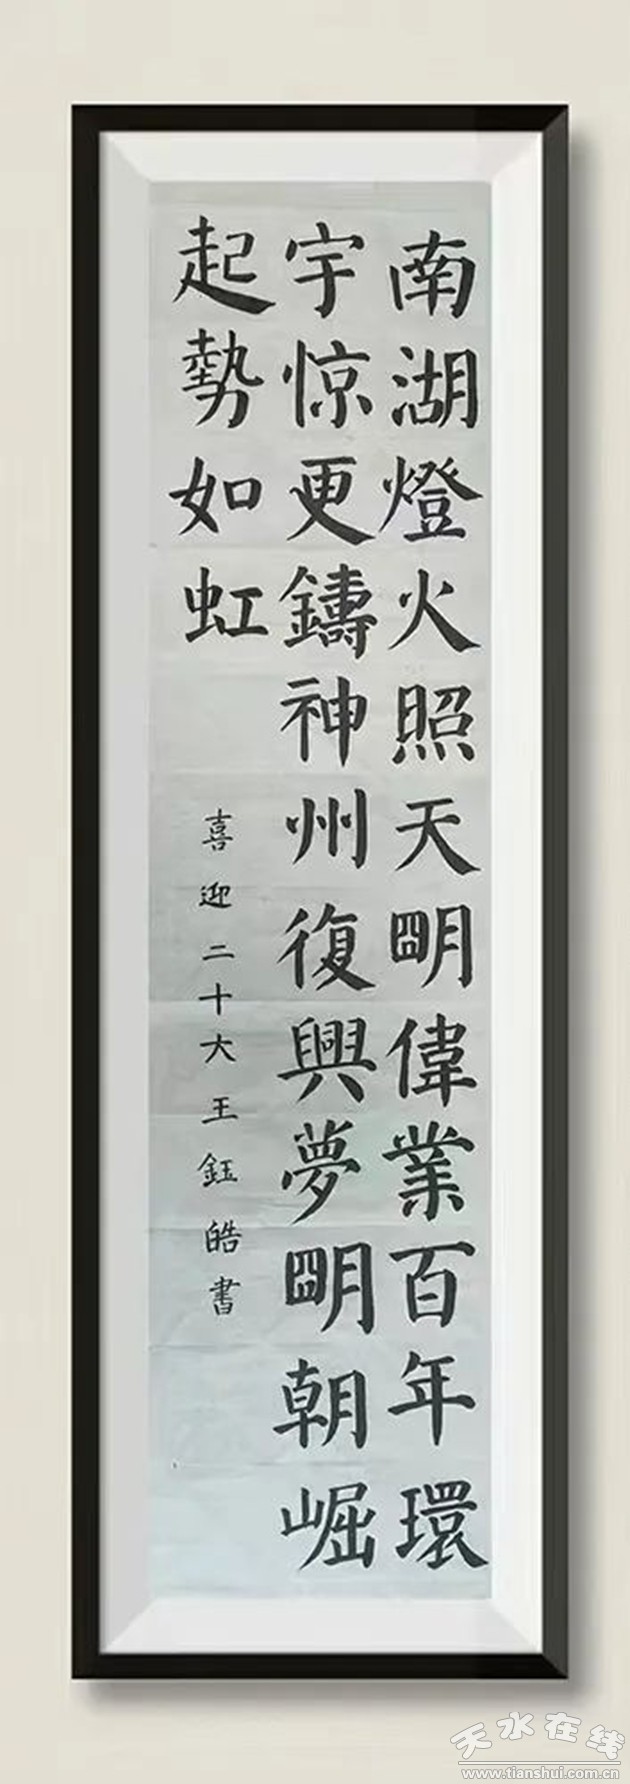 南湖燈火照天明偉業百年環
宇惊更鑄神州復興夢明朝崛
起勢如虹
喜迎二十大王鈺皓書
天水在线
www.tianshui.com.cn